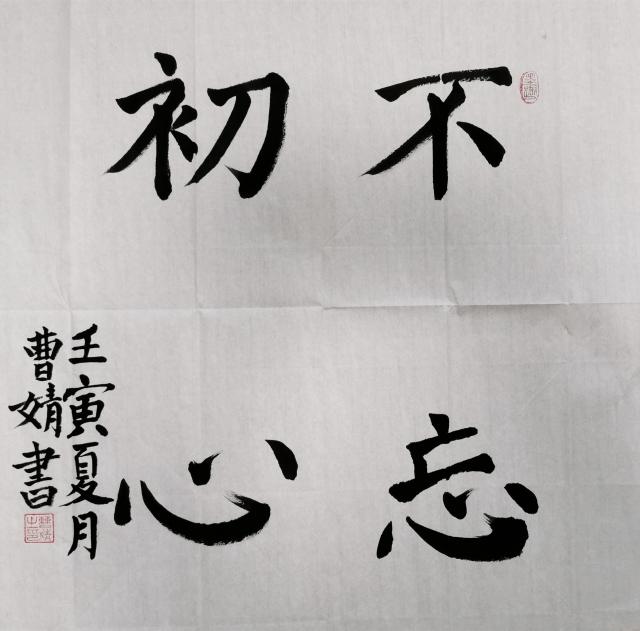 不忘
初心
壬寅夏月
曹婧書